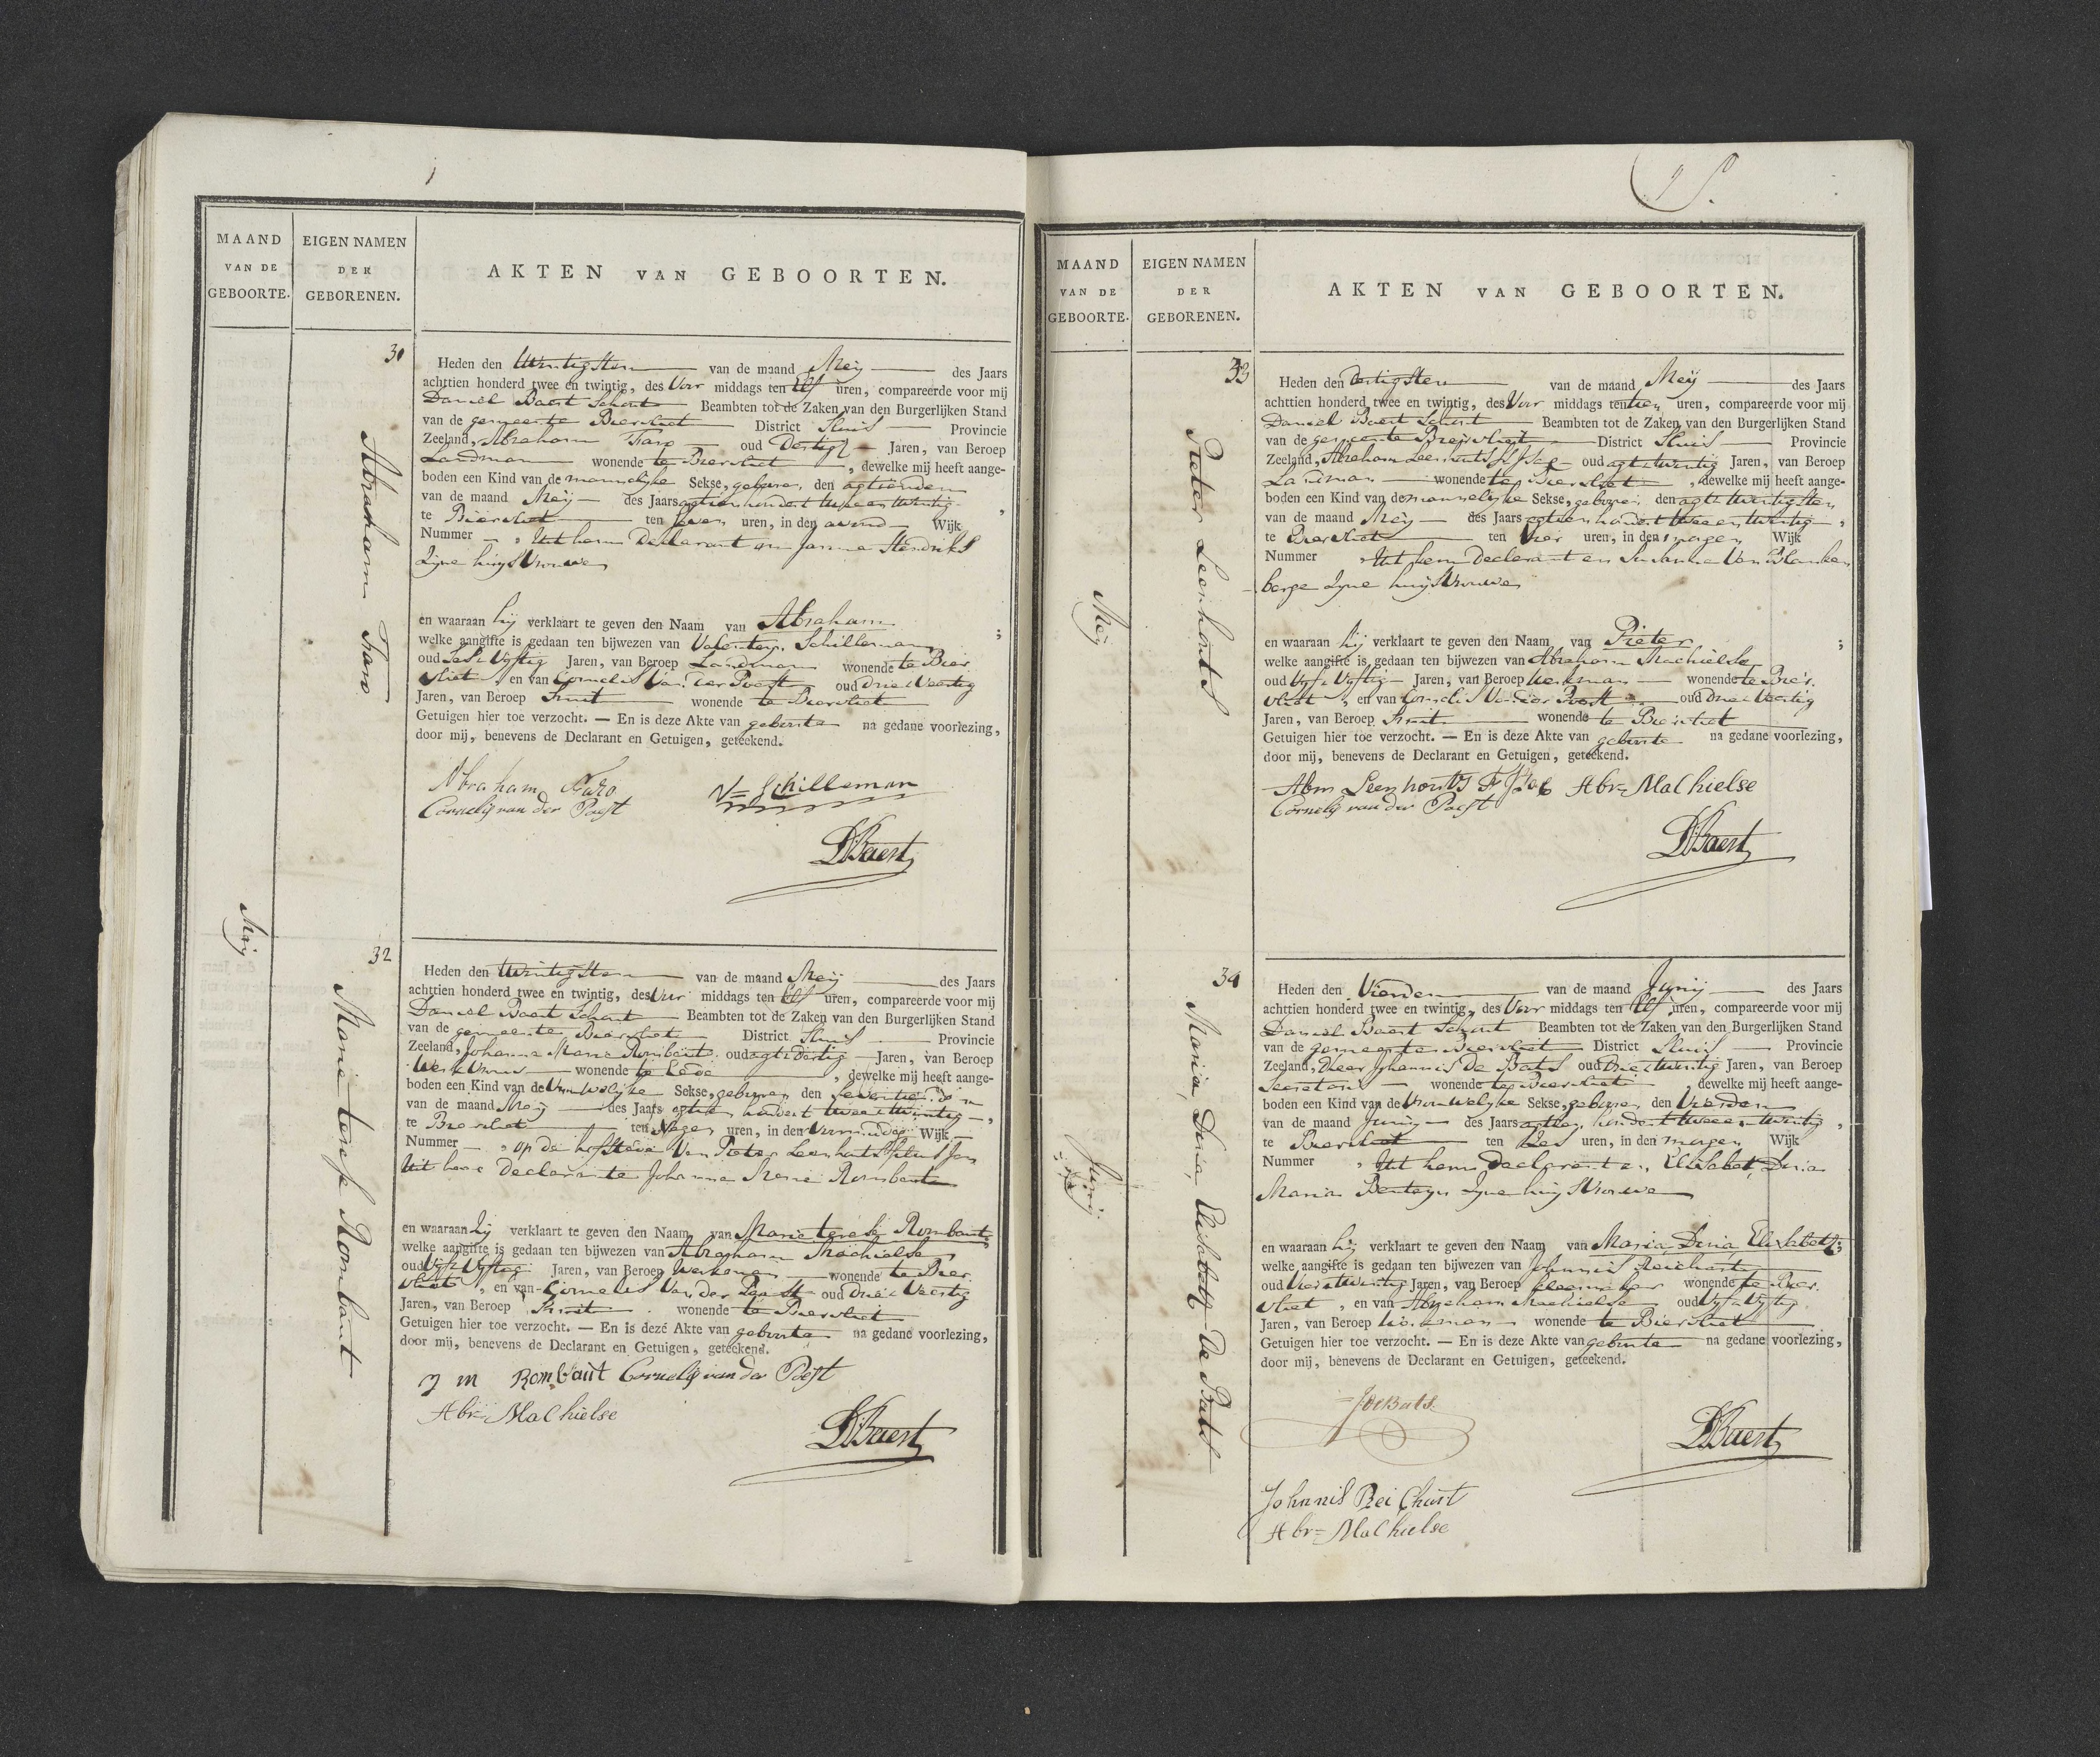 MAAND
VAN DE
GEBOORTE.
EIGEN NAMEN
DER
GEBORENEN.
AKTEN VAN GEBOORTEN.
31
Abraham Faro
Heden den twintigsten van de maand Meij des Jaars
achttien honderd twee en twintig, des Voor middags ten Elf uren, compareerde voor mij
Daniel Baert Schout Beambten tot de Zaken van den Burgerlijken Stand
van de gemeente Biervliet District Sluis Provincie
Zeeland, Abraham Faro oud Dertig Jaren, van Beroep
Landman wonende te Biervliet, dewelke mij heeft aange-
boden een Kind van de mannelyke Sekse, geboren den agtienden
van de maand Meij des Jaars agtien hondert twee en twintig,
te Biervliet ten zeven uren, in den avond Wijk
Nummer , Uit hem Declarant en Janna Hendriks
Zyne huysvrouwe
en waaraan hij verklaart te geven den Naam van Abraham;
welke aangifte is gedaan ten bijwezen van Valentyn Schilleman
oud Jaren, van Beroep Landman wonende te Bier
vliet, en van Cornelis Van der Poest oud drie & Veertig
Jaren, van Beroep Smit wonende te Biervliet
Getuigen hier toe verzocht. — En is deze Akte van geboorte na gedane voorlezing,
door mij, benevens de Declarant en Getuigen, geteekend.
Abraham Faro
V= Schilleman
Cornelis van der Poest
DBaert
Meij
32
Marie terese Rombaut
Heden den twintigsten van de maand Meij des Jaars
achttien honderd twee en twintig, des Voor middags ten Elf uren, compareerde voor mij
Daniel Baert Schout Beambten tot de Zaken van den Burgerlijken Stand
van de gemeente Biervliet District Sluis Provincie
Zeeland, Johanna Marie Rombaut oud agt & dertig Jaren, van Beroep
Werkvrouw wonende te Eede, dewelke mij heeft aange-
boden een Kind van de Vrouwelyke Sekse, geboren den
van de maand Meij des Jaars agtien hondert twee & twintig,
te Biervliet ten Negen uren, in den Voormiddag Wijk
Nummer , op de hofstede Van Pieter Leenhouts
Uit haar Declarante Johanna Marie Rombaut
en waaraan Zij verklaart te geven den Naam van Marie terese Rombaut;
welke aangifte is gedaan ten bijwezen van Abraham Machielse
oud Vyf & Vyftig Jaren, van Beroep Werkman wonende te Bier
vliet, en van Cornelis Van der Poest oud drie & Veertig
Jaren, van Beroep Smit wonende te Biervliet
Getuigen hier toe verzocht. — En is dezé Akte van geboorte na gedane voorlezing,
door mij, benevens de Declarant en Getuigen, geteekend.
J M Rombaut Cornelis van der Poest
Abr= Machielse
DBaert
MAAND
VAN DE
GEBOORTE.
EIGEN NAMEN
DER
GEBORENEN.
AKTEN VAN GEBOORTEN.
33
Meij
Pieter Leenhouts
Heden den dertigsten van de maand Meij des Jaars
achttien honderd twee en twintig, des Voor middags ten tien uren, compareerde voor mij
Daniel Baert Schout Beambten tot de Zaken van den Burgerlijken Stand
van de gemeente Biervliet District Sluis Provincie
Zeeland, Abraham Leenhouts oud agt & twintig Jaren, van Beroep
Landman wonende te Biervliet, dewelke mij heeft aange-
boden een Kind van de mannelyke Sekse, geboren den agt & twintigsten
van de maand Meij des Jaars agtien hondert twee en twintig,
te Biervliet ten Vier uren, in den morgen Wijk
Nummer , Uit hem Declarant en Susanna Van Blanken
berge Zyne huysvrouwe
en waaraan hij verklaart te geven den Naam van Pieter;
welke aangifte is gedaan ten bijwezen van Abraham Machielse
oud Vyf & Vyftig Jaren, van Beroep Werkman wonende te Bier
vliet, en van Cornelis Van der Poest oud drie & Veertig
Jaren, van Beroep Smit wonende te Biervliet
Getuigen hier toe verzocht. — En is deze Akte van geboorte na gedane voorlezing,
door mij, benevens de Declarant en Getuigen, geteekend.
Abm Leenhouts Abr= Machielse
Cornelis van der Poest
DBaert
34
Junij
Maria, Dina, Elisabeth De Bats
Heden den Vierden van de maand Junij des Jaars
achttien honderd twee en twintig, des Voor middags ten Elf uren, compareerde voor mij
Daniel Baert Schout Beambten tot de Zaken van den Burgerlijken Stand
van de gemeente Biervliet District Sluis Provincie
Zeeland, d'heer Johannis De Bats oud Drie & twintig Jaren, van Beroep
Secretaris wonende te Biervliet, dewelke mij heeft aange-
boden een Kind van de Vrouwelyke Sekse, geboren den Vierden
van de maand Junij des Jaars agtien hondert twee en twintig,
te Biervliet ten Zes uren, in den morgen Wijk
Nummer , Uit hem Declarant en Elisabet, Dina
Maria Benteyn Zyne huysvrouwe
en waaraan hij verklaart te geven den Naam van Maria Dina Elisabeth;
welke aangifte is gedaan ten bijwezen van Johannis Reichart
oud Jaren, van Beroep Kleermaker wonende te Bier
vliet, en van Abraham Machielse oud Vyf & Vyftig
Jaren, van Beroep Werkman wonende te Biervliet
Getuigen hier toe verzocht. — En is deze Akte van geboorte na gedane voorlezing,
door mij, benevens de Declarant en Getuigen, geteekend.
JDeBats
DBaert
Johannis Reichart
Abr= Machielse